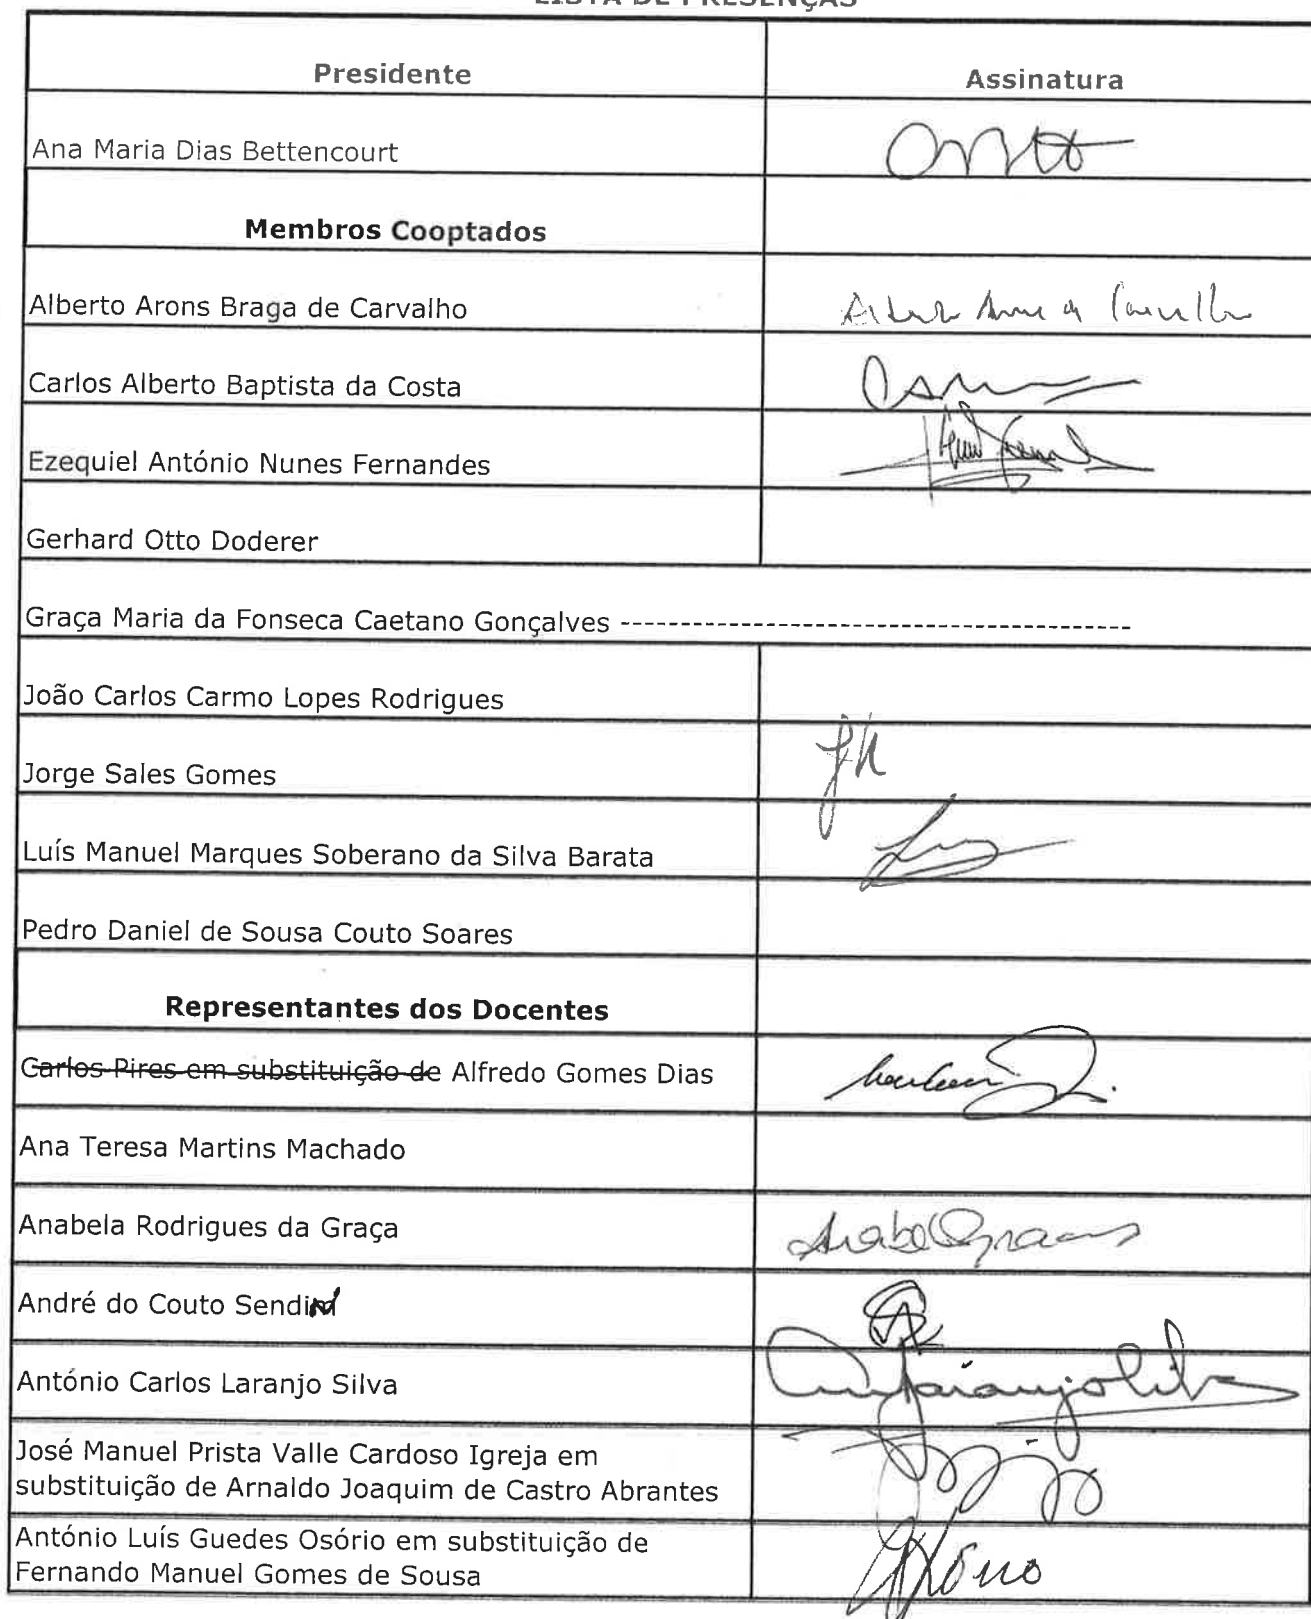 LISTA DE PRESENÇAS
Presidente
Assinatura
Ana Maria Dias Bettencourt
Membros Cooptados
Alberto Arons Braga de Carvalho
Carlos Alberto Baptista da Costa
Ezequiel António Nunes Fernandes
Gerhard Otto Doderer
Graça Maria da Fonseca Caetano Gonçalves -------------------------------------------
João Carlos Carmo Lopes Rodrigues
Jorge Sales Gomes
Luís Manuel Marques Soberano da Silva Barata
Pedro Daniel de Sousa Couto Soares
Representantes dos Docentes
Carlos Pires em substituição de Alfredo Gomes Dias
Ana Teresa Martins Machado
Anabela Rodrigues da Graça
André do Couto
António Carlos Laranjo Silva
José Manuel Prista Valle Cardoso Igreja em
substituição de Arnaldo Joaquim de Castro Abrantes
António Luís Guedes Osório em substituição de
Fernando Manuel Gomes de Sousa